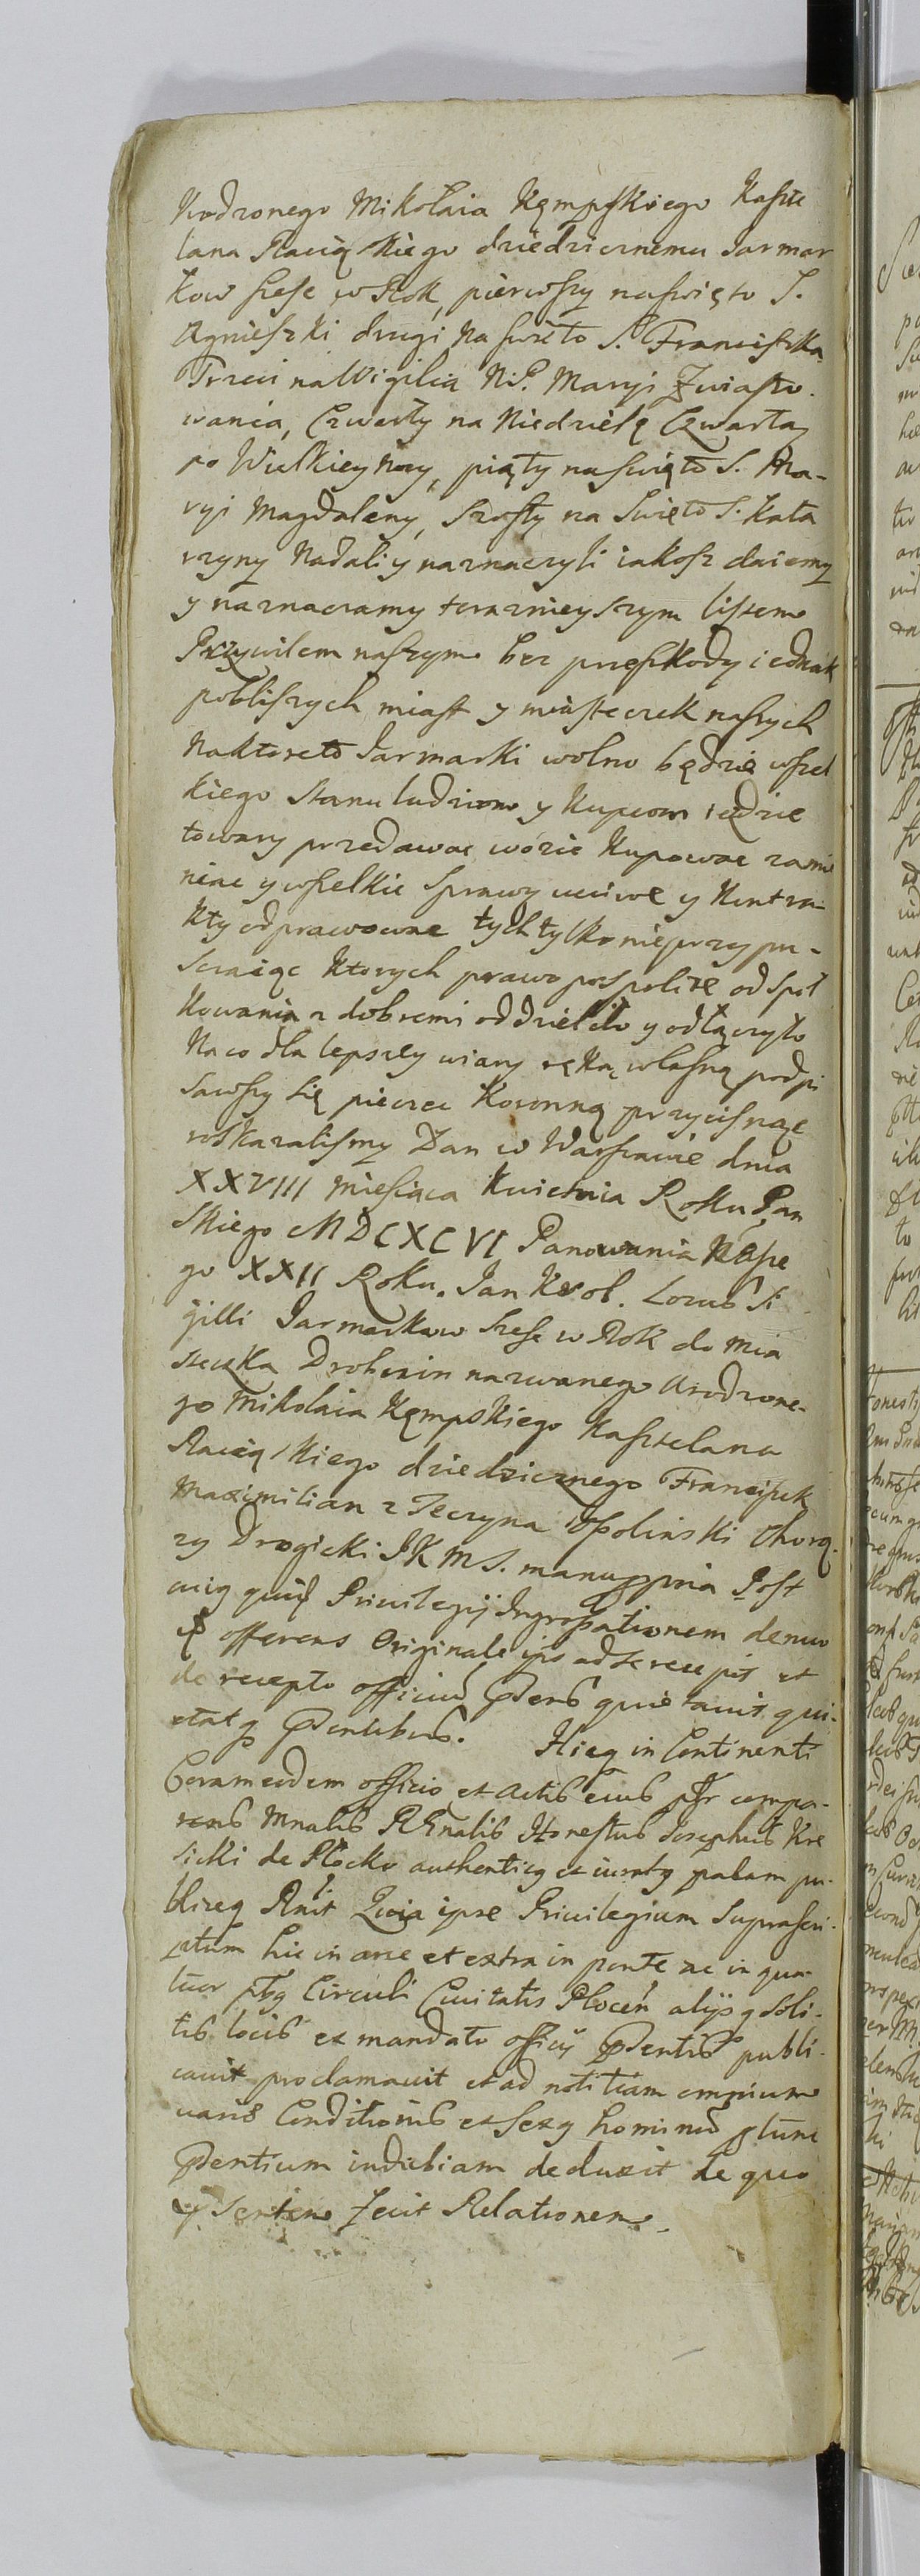 Urodzonego Mikołaia Kęmpskiego Kaszte
lana Raciąskiego dziedzicznemu Jarmar
kow szesc w Rok, pierwszy naswięto S.
Agnieszki drugi na swięto S. Franciszka
Trzeci na Wigilia N.P. Maryi Zwiasto.
wania, Czwarty na Niedzielę Czwartą
po Wielkiey Nocy, piąty naswięto S. Ma-
ryi Magdaleny, Szosty na Swięto S. Kata
rzyny Nadali y naznaczyli iakosz daiemy
y naznaczamy teraznieyszym listem
Przywilem naszym bez przeszkody iednak
pobliszych miast y miasteczek naszych
Naktoreto Jarmarki wolno będzie wszel
kiego stanu ludziom y Kupcom
towary przedawac wozic Kupowac zamie
niac y wszelkie Sprawy ucciwe y Kontra-
kty odprawowac tych tylko nieprzypu-
sczaiąc Ktorych prawo pospolite od społ
kowania z dobremi oddzieliło y odłączyło
Na co dla lepszey wiary ręką własną podpi
sawszy się pieczęc Koronną przycisnąc
roskazalismy Dan w Warszawie dnia
XXVIII Miesiąca Kwietnia Roku Pan
skiego MDCXCVI Panowania Nasze
go XXII Roku. Jan Krol. Locus Si
gilli Jarmarkow szesc w Rok do Mia
steczka Drobnin nazwanego Urodzone-
go Mikołaia Kęmpskiego Kasztelana
Raciąskiego dziedzicznego Franciszek
Maximilian z Teczyna Ossolinski Chorą-
zy Drogicki JKMS. manuppria Post
cuiq quid Privilegij Ingrossationem denuo
offerens Originale ipse ad se recepit et
de recepto officiu pdens quietavit qui-
etat q pdentibus. Hicq in Continenti
Coram eodem officio et Actis eius psr compa-
rens Mnalis REnalis Honestus Josephus Kre
sicki de Płocko authenticq et iuratq palam pu-
bliceq Rnit Quia ipse Privilegium Suprascri-
ptum hic in arce et extra in ponte ac in qua-
tuor ptbq Circuli Civitatis Plocen alijsq Soli-
tis locis ex mandato officij pdentis publi-
cavit proclamavit et ad notitiam omnium
uariis Conditionis et Sexq hominu ptunc
pdentium indubiam deduxit de quo
Fecit Relationem.